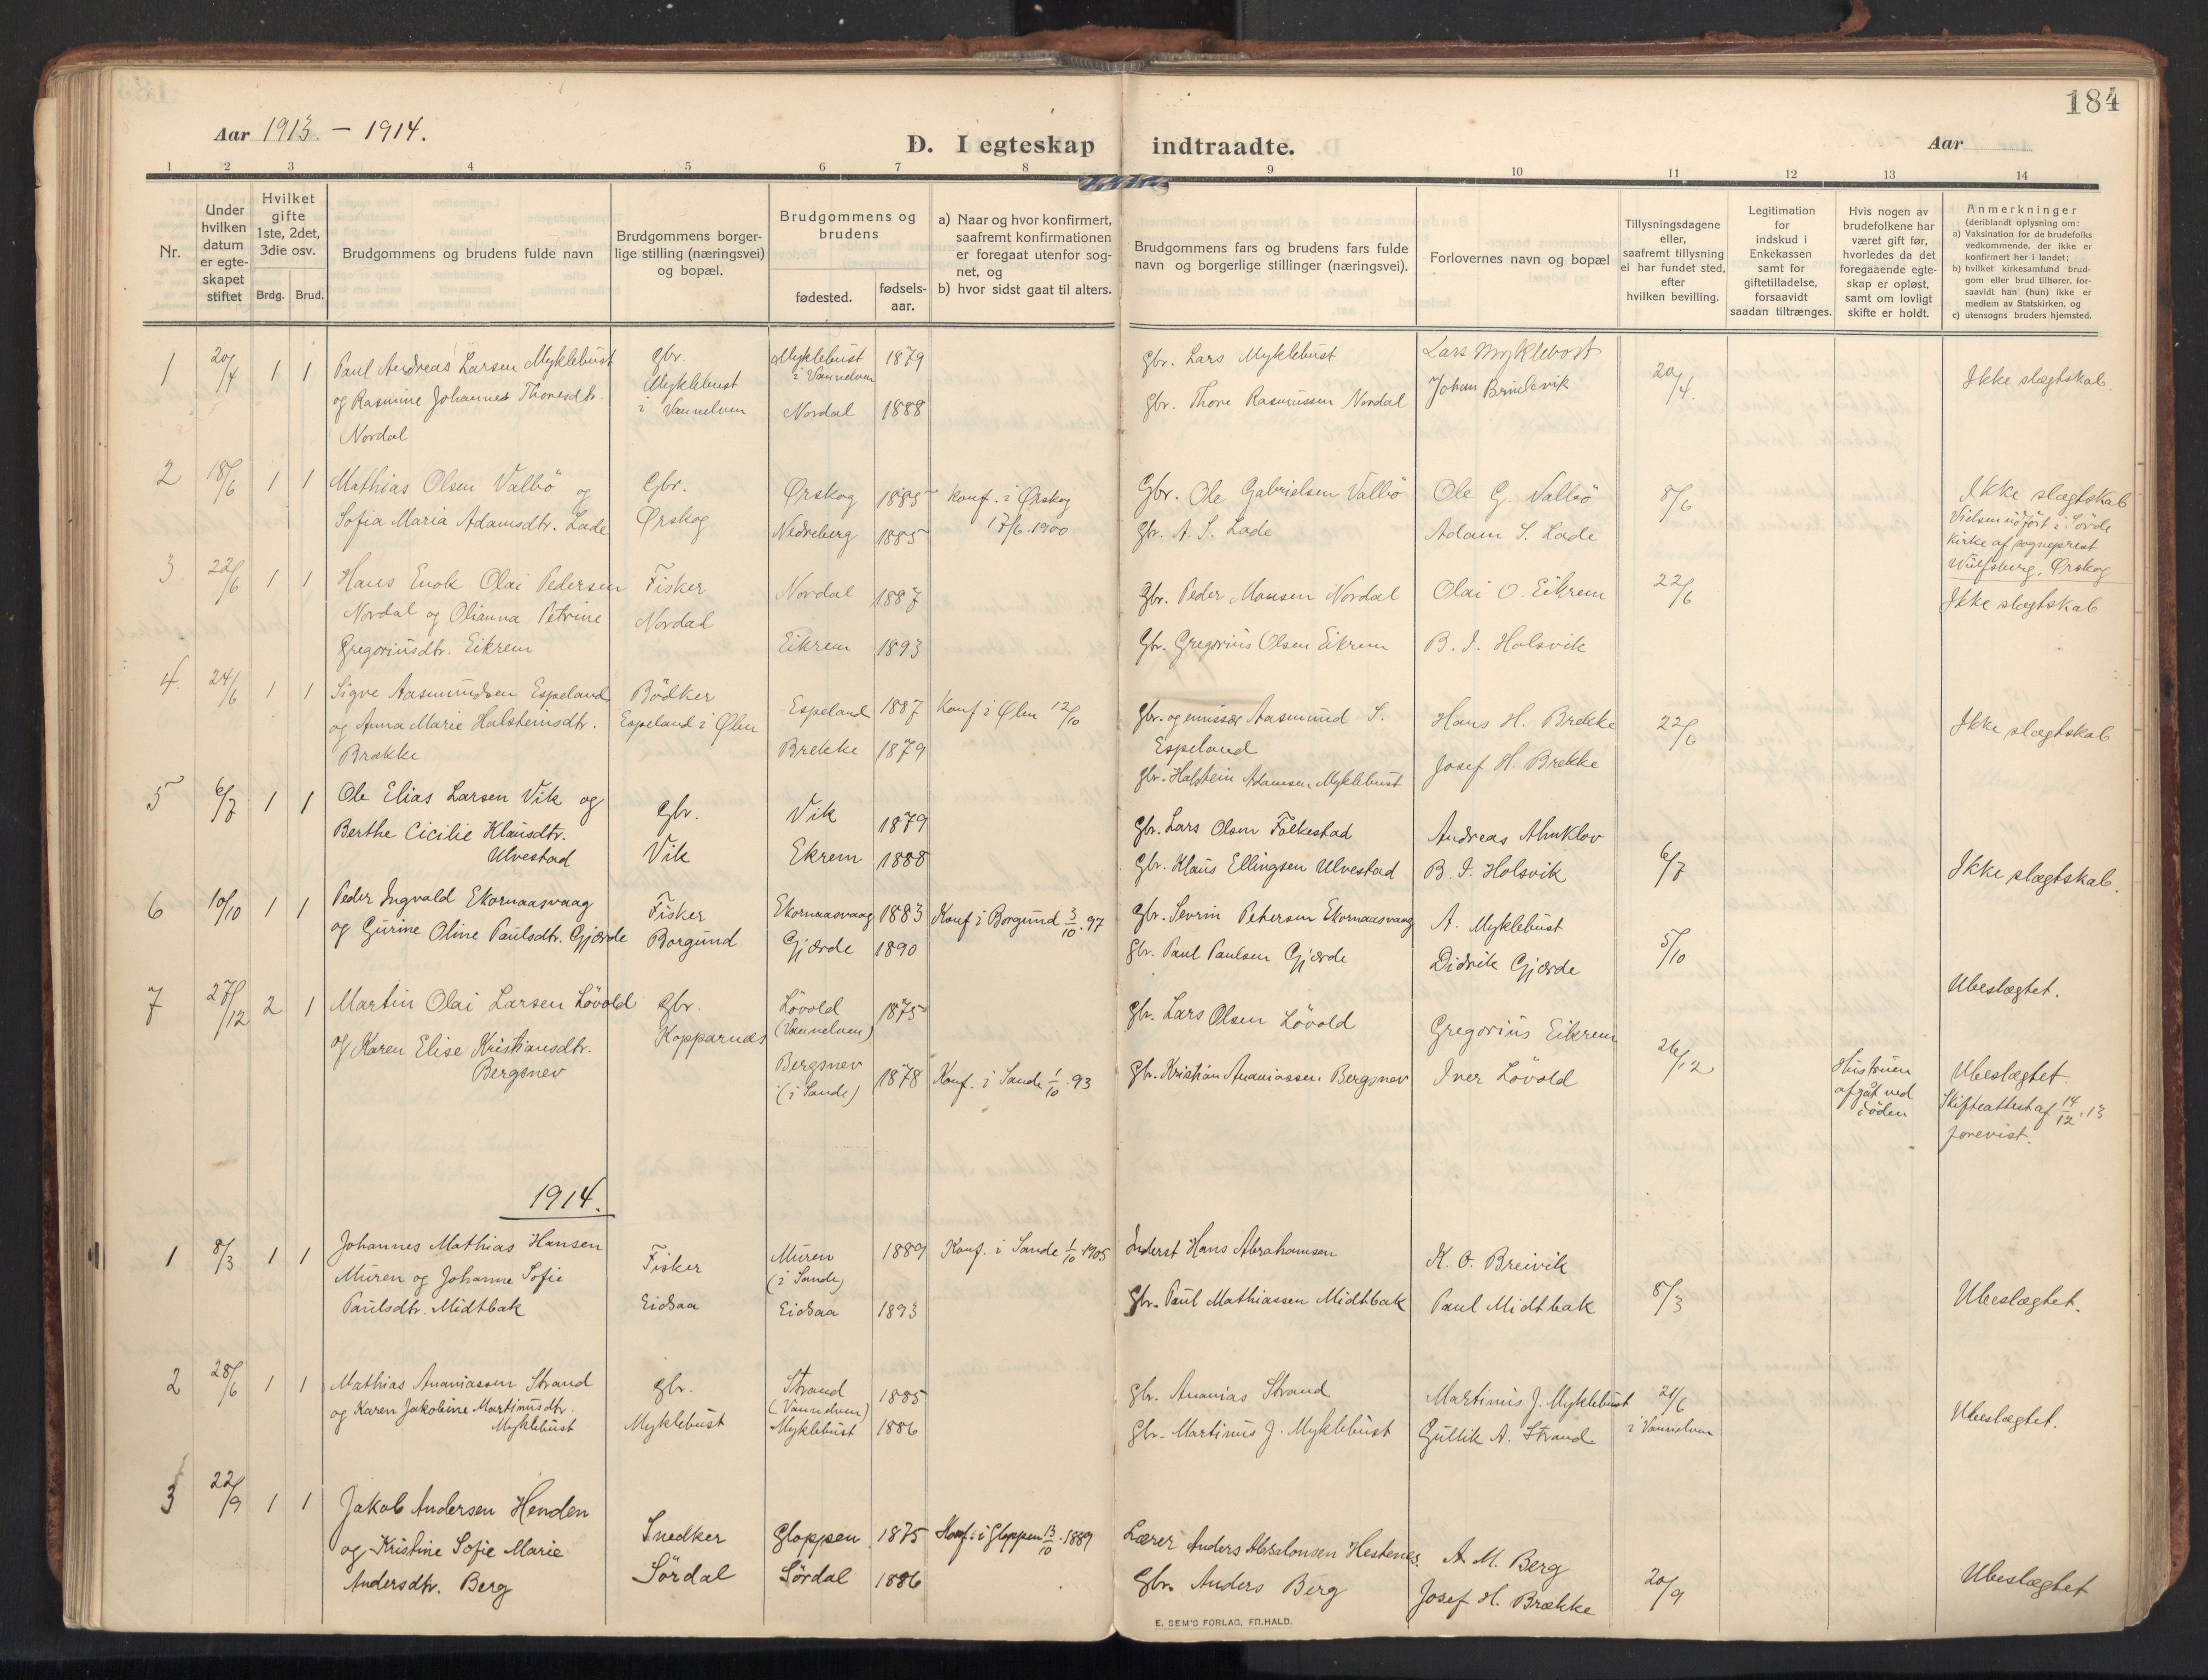 184
Aar 1913 - 1914.
D. I egteskap indtraadte.
Aar
1 2 3 4 5 6 7 8 9 10 11 12 13 14
Nr.
Under hvilken datum er egteskapet stiftet
Hvilket gifte 1ste, 2det, 3die osv.
Brdg. Brud.
Brudgommens og brudens fulde navn
Brudgommens borgerlige stilling (næringsvei) og bopæl.
Brudgommens og brudens
fødested.
fødselsaar.
a) Naar og hvor konfirmert, saafremt konfirmationen er foregaat utenfor sognet, og
b) hvor sidst gaat til alters.
Brudgommens fars og brudens fars fulde navn og borgerlige stillinger (næringsvei).
Forlovernes navn og bopæl
Tillysningsdagene eller, saafremt tillysning ei har fundet sted, efter hvilken bevilling.
Legitimation for indskud i Enkekassen samt for giftetilladelse, forsaavidt saadan tiltrænges.
Hvis nogen av brudefolkene har været gift før, hvorledes da det foregaaende egteskap er opløst, samt om lovligt skifte er holdt.
Anmerkninger (deriblandt oplysning om:
a) Vaksination for de brudefolks vedkommende, der ikke er konfirmert her i landet;
b) hvilket kirkesamfund brudgom eller brud tilhører, forsaavidt han (hun) ikke er medlem av Statskirken, og
c) utensogns bruders hjemsted.
1 20/4 1 1 Paul Andreas Larsen Myklebust Gbr. Myklebust 1879 Gbr. Lars Myklebust Lars Myklebost 20/4. Ikke slægtskab.
Myklebust i Vannelven
og Rasmine Johannes Thoresdtr. i Vannelven Nordal 1888 Gbr. Thore Rasmussen Nordal Johan Brudevik
Nordal
2 18/6 1 1 Mathias Olsen Valbö og Gbr. Ørskog 1885 Konf. i Ørskog Gbr. Ole Gabrielsen Valbö Ole G. Valbö 8/6 Ikke slægtskab
Sofia Maria Adamsdtr. Lade Ørskog Nedreberg 1885 17/6.1900 Gbr. A. S. Lade Adam S. Lade Vielsen udført i Sørde
Kirke af sogneprest
Wulfsberg, Ørskog
3. 22/6 1 1 Hans Enok Olai Pedersen Fisker Nordal 1887 Gbr. Peder Monsen Nordal Olai O. Eikrem 22/6 Ikke slægtskab
Nordal og Olianna Petrine Nordal
Gregoriusdtr. Eikrem Eikrem 1893 Gbr. Gregorius Olsen Eikrem B. I. Holsvik
4. 24/6 1 1 Sigve Aasmundsen Espeland Bödker Espeland 1887 Konf i Ølen 12/10 Gbr. og emissær Aasmund S. Hans H. Brekke 22/6 Ikke slægtskab
og Anna Marie Halsteinsdtr. Espeland i Ølen Espeland
Brække Brekke 1879 Gbr. Halstein Adamsen Myklebust Josef H. Brekke
5 6/7 1 1 Ole Elias Larsen Vik og Gbr. Vik 1879 Gbr. Lars Olsen Folkestad Andreas Almklov 6/7 Ikke slægtskab.
Berthe Cicilie Klausdtr. Vik Ekrem 1888 Gbr. Klaus Ellingsen Ulvestad B. I. Holsvik
Ulvestad
6 10/10 1 1 Peder Ingvald Ekornaasvaag Fisker Ekornaasvaag 1883 Konf i Borgund 3/10.97 Gbr. Sevrin Petersen Ekornaasvaag A. Myklebust 5/10 Ubeslægtet.
og Gurine Oline Paulsdtr. Gjærde Borgund Gjærde 1890 Gbr. Paul Paulsen Gjærde Didrik Gjærde
7 27/12 2 1 Martin Olai Larsen Lövold Gbr. Lövold (Vannelven) 1875 Gbr. Lars Olsen Lövold Gregorius Eikrem 26/12 Hustruen afgåt ved døden Ubeslægtet.
og Karen Elise Kristiansdtr. Kopparnæs Bergsnev (i Sande) 1878 Konf. i Sande 1/10.93 Gbr. Kristian Ananiassen Bergsnev Iver Lövold Skifteattest af 14/12.13
Bergsnev forevist.
1914.
1 8/3 1 1 Johannes Mathias Hansen Fisker Muren (i Sande) 1889 Konf. i Sande 1/10 1905 Inderst Hans Abrahamsen K. O. Breivik 8/3 Ubeslægtet.
Muren og Johanne Sofie Eidsaa
Paulsdtr. Midtbak Eidsaa 1893 Gbr. Paul Mathiassen Midtbak Paul Midtbak
2 28/6 1 1 Mathias Ananiassen Strand Gbr. Strand (Vannelven) 1885 Gbr. Ananias Strand Martinus J. Myklebust 21/6 i Vannelven Ubeslægtet.
og Karen Jakobine Martinusdtr. Myklebust Myklebust 1886 Gbr. Martinus J. Myklebust Gullik A. Strand
Myklebust
3 22/9 1 1 Jakob Andersen Henden Snedker Gloppen 1875 Konf. i Gloppen 13/10.1889 Lærer Anders Absalonsen Hestenes. A. M. Berg 20/9 Ubeslægtet
og Kristine Sofie Marie Sördal Sördal 1886 Gbr. Anders Berg Josef H. Brække
Andersdtr. Berg
E. SEM'S FORLAG, FR.HALD.